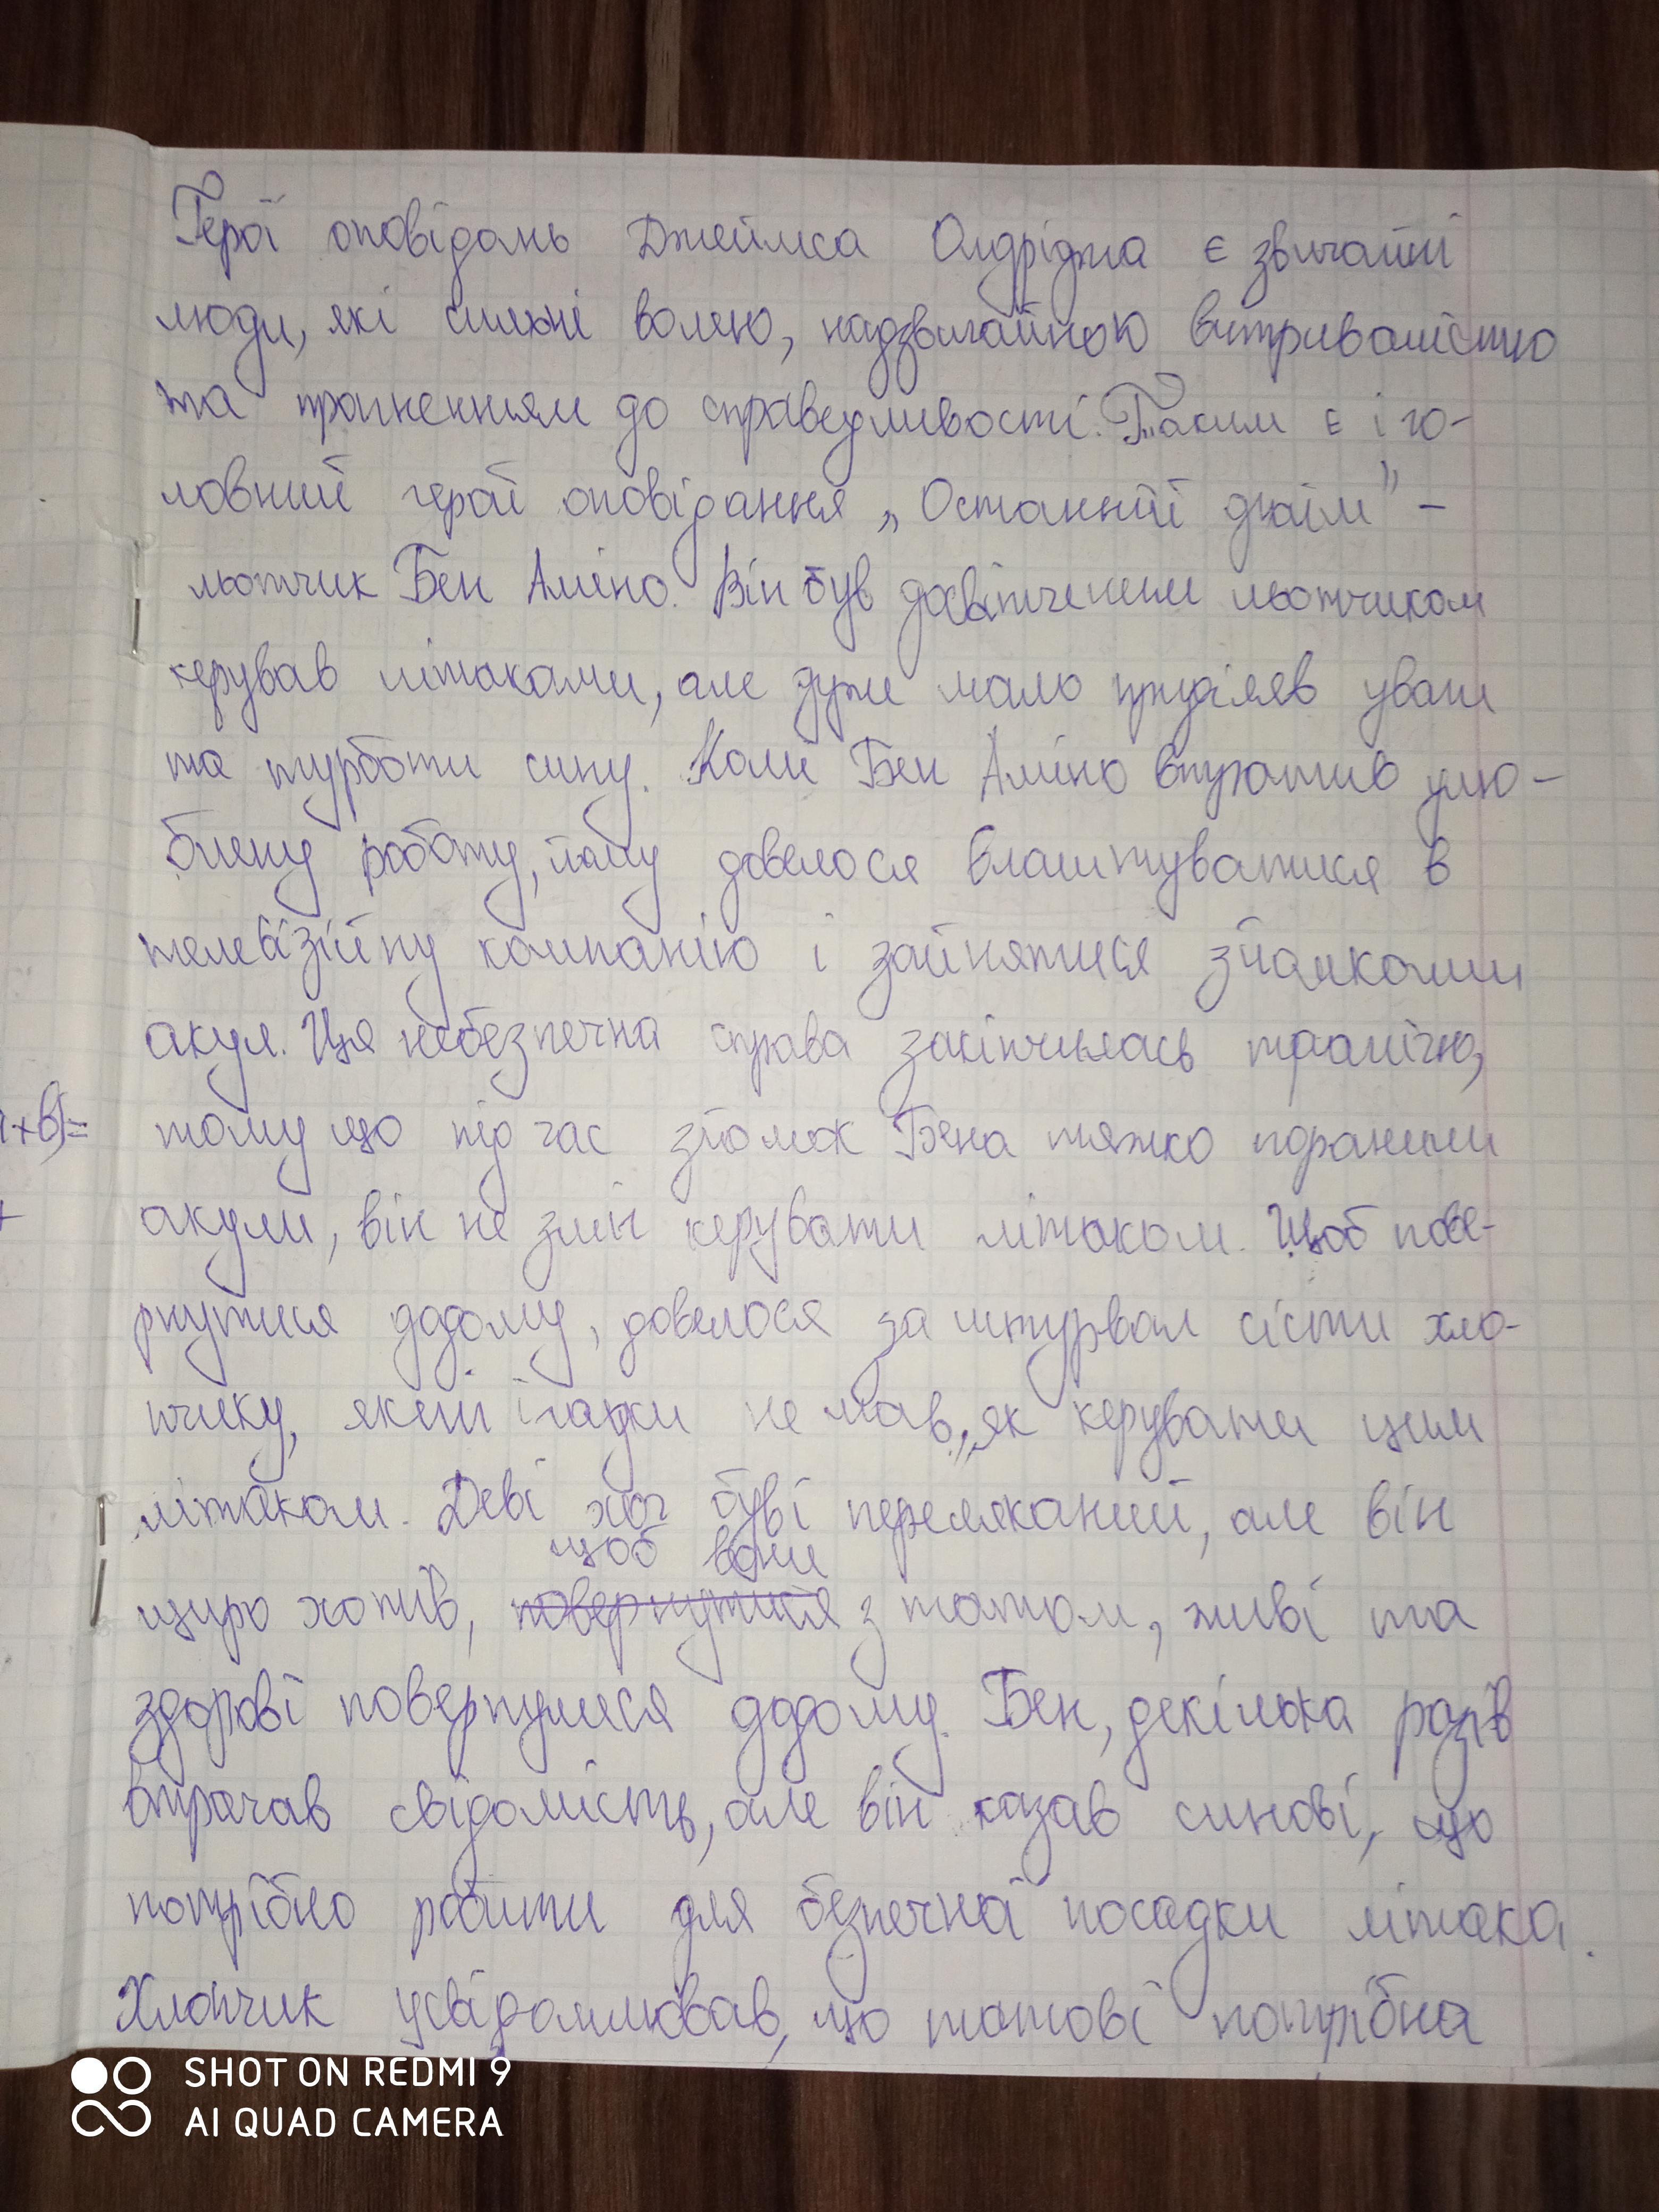 Герої оповідань Джеймса Олдріджа є звичайні
люди, які сильні волею, надзвичайною витривалістю
та прагненням до справедливості. Таким є і го-
ловний герой оповідання „Останній дюйм" –
льотчик Бен Аміно. Він був досвітченим льотчиком
керував літаками, але дуже мало приділяв уваги
та турботи сину. Коли Бен Аміно втратив улю-
блену роботу, йому довелося влаштуватися в
телевізійну компанію і зайнятися зйомками
акул. Ця небезпечна справа закінчилась трагічно,
тому що під час зйомок Бена тяжко поранили
акули, він не зміг керувати літаком. Щоб пове-
рнутися додому, довелося за штурвал сісти хло-
пчику, який і гадки не мав, як керувати цим
літаком. Деві хоч був і переляканий, але він
щоб вони
щиро хотів, повернутися з татом, живі та
здорові повернулися додому. Бен, декілька разів
втрачав свідомість, але він казав синові, що
потрібно робити для безпечної посадки літака.
Хлопчик усвідомлював, що татові потрібна
+b)=
+
SHOT ON REDMI 9
AI QUAD CAMERA